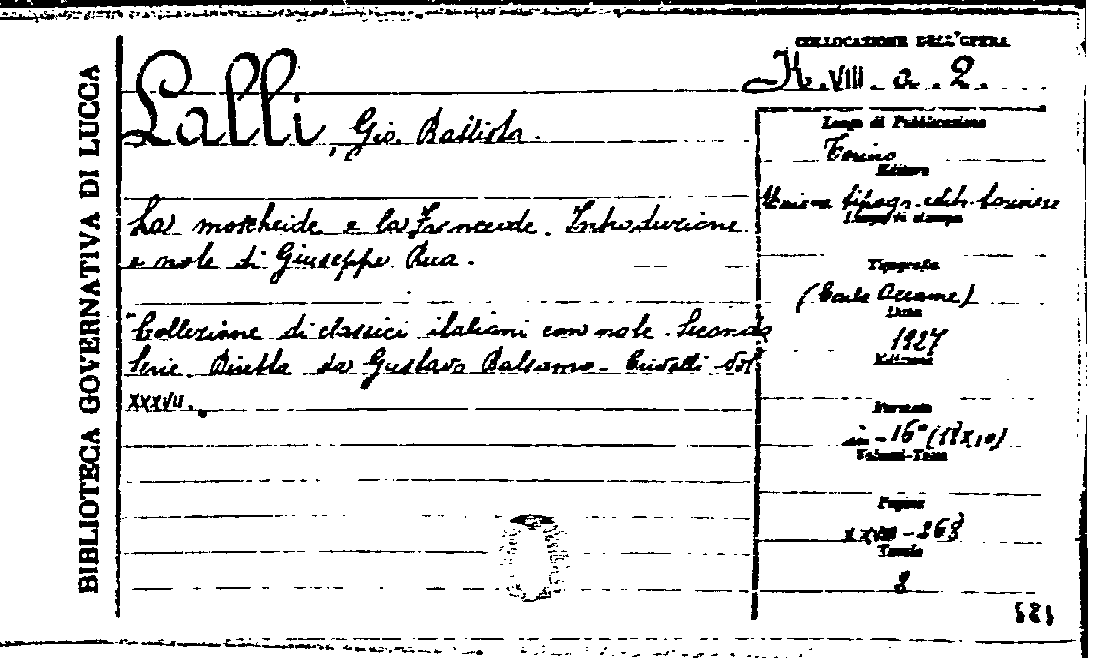 BIBLIOTECA GOVERNATIVA DI LUCCA
COLLOCAZIONE DELL'OPERA
K. VIII. a. 2.
Lalli, Gio. Battista.
Luogo di Pubblicazione
Torino
Editore
Unione tipogr. edit. torinese
Luogo di stampa
La moscheide e la Franceide. Introduzione
e note di Giuseppe Rua.
Tipografia
(Carlo Accame)
Data
1927
Edizione
"Collezione di classici italiani con note. Seconda
Serie. Diretta da Gustavo Balsamo-Crivelli. Vol
XXXVII.
Formato
in-16°
Volumi-Tomo
Pagine
Tavole
2